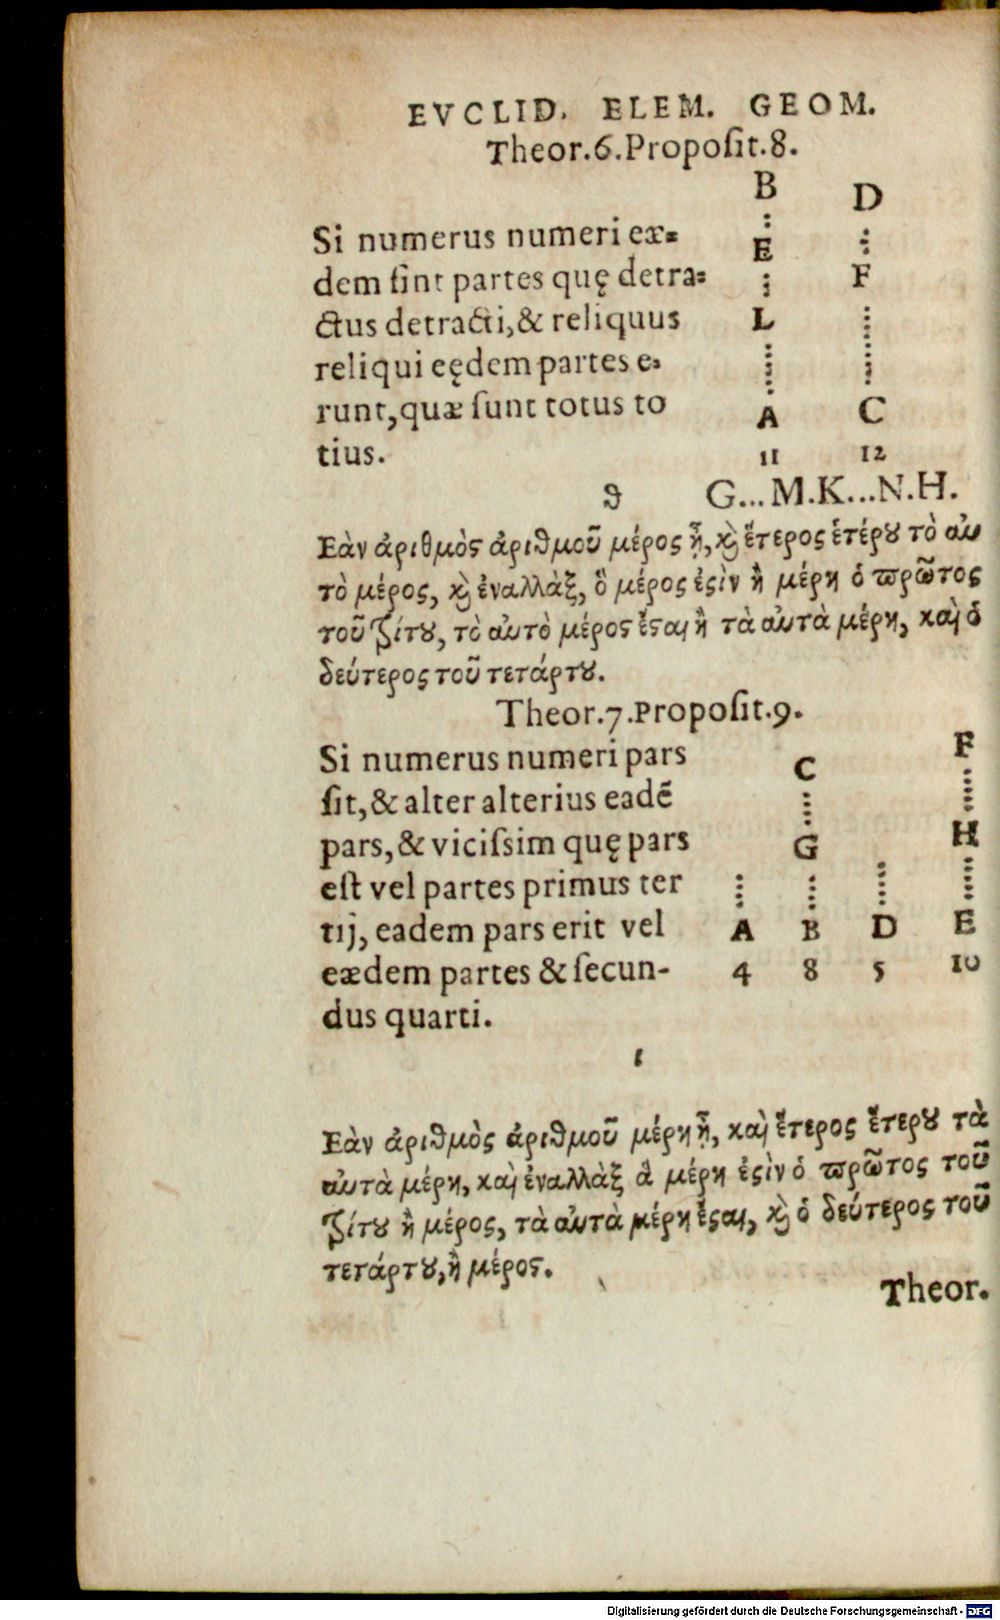 EVCLID. ELEM. GEOM.
Theor.6.Proposit.8.
Si numerus numeri eæ=
dem sint partes quę detra=
ctus detracti,& reliquus
reliqui eędem partes e=
runt,quæ sunt totus to
tius.
B D
E F
L
A C
11 12
G...M.K...N.H.
ϑ
Εὰν ἀριθμὸς ἀριθμοῦ μέρος ᾖ, κὶ ἕτερος ἑτέρου τὸ αὐ
τὸ μέρος, κὶ ἐναλλὰξ, ὃ μέρος ἐςὶν ἢ μέρη ὁ πρῶτος
τοῦ τρίτου, τὸ αὐτὸ μέρος ἔςαι ἢ τὰ αὐτὰ μέρη, καὶ ὁ
δεύτερος τοῦ τετάρτου.
Theor.7.Proposit.9.
Si numerus numeri pars
sit,& alter alterius eadē
pars,& vicissim quę pars
est vel partes primus ter
tij, eadem pars erit vel
eædem partes & secun-
dus quarti.
C F
G H
A B D E
4 8 5 10
ι
Εὰν ἀριθμὸς ἀριθμοῦ μέρη ᾖ, καὶ ἕτερος ἕτερου τὰ
αὐτὰ μέρη, καὶ ἐναλλὰξ ἃ μέρη ἐςὶν ὁ πρῶτος τοῦ
τρίτου ἢ μέρος, τὰ αὐτὰ μέρη ἔςαι, κὶ ὁ δεύτερος τοῦ
τετάρτου, ἢ μέρος.
Theor.
Digitalisierung gefördert durch die Deutsche Forschungsgemeinschaft - DFG